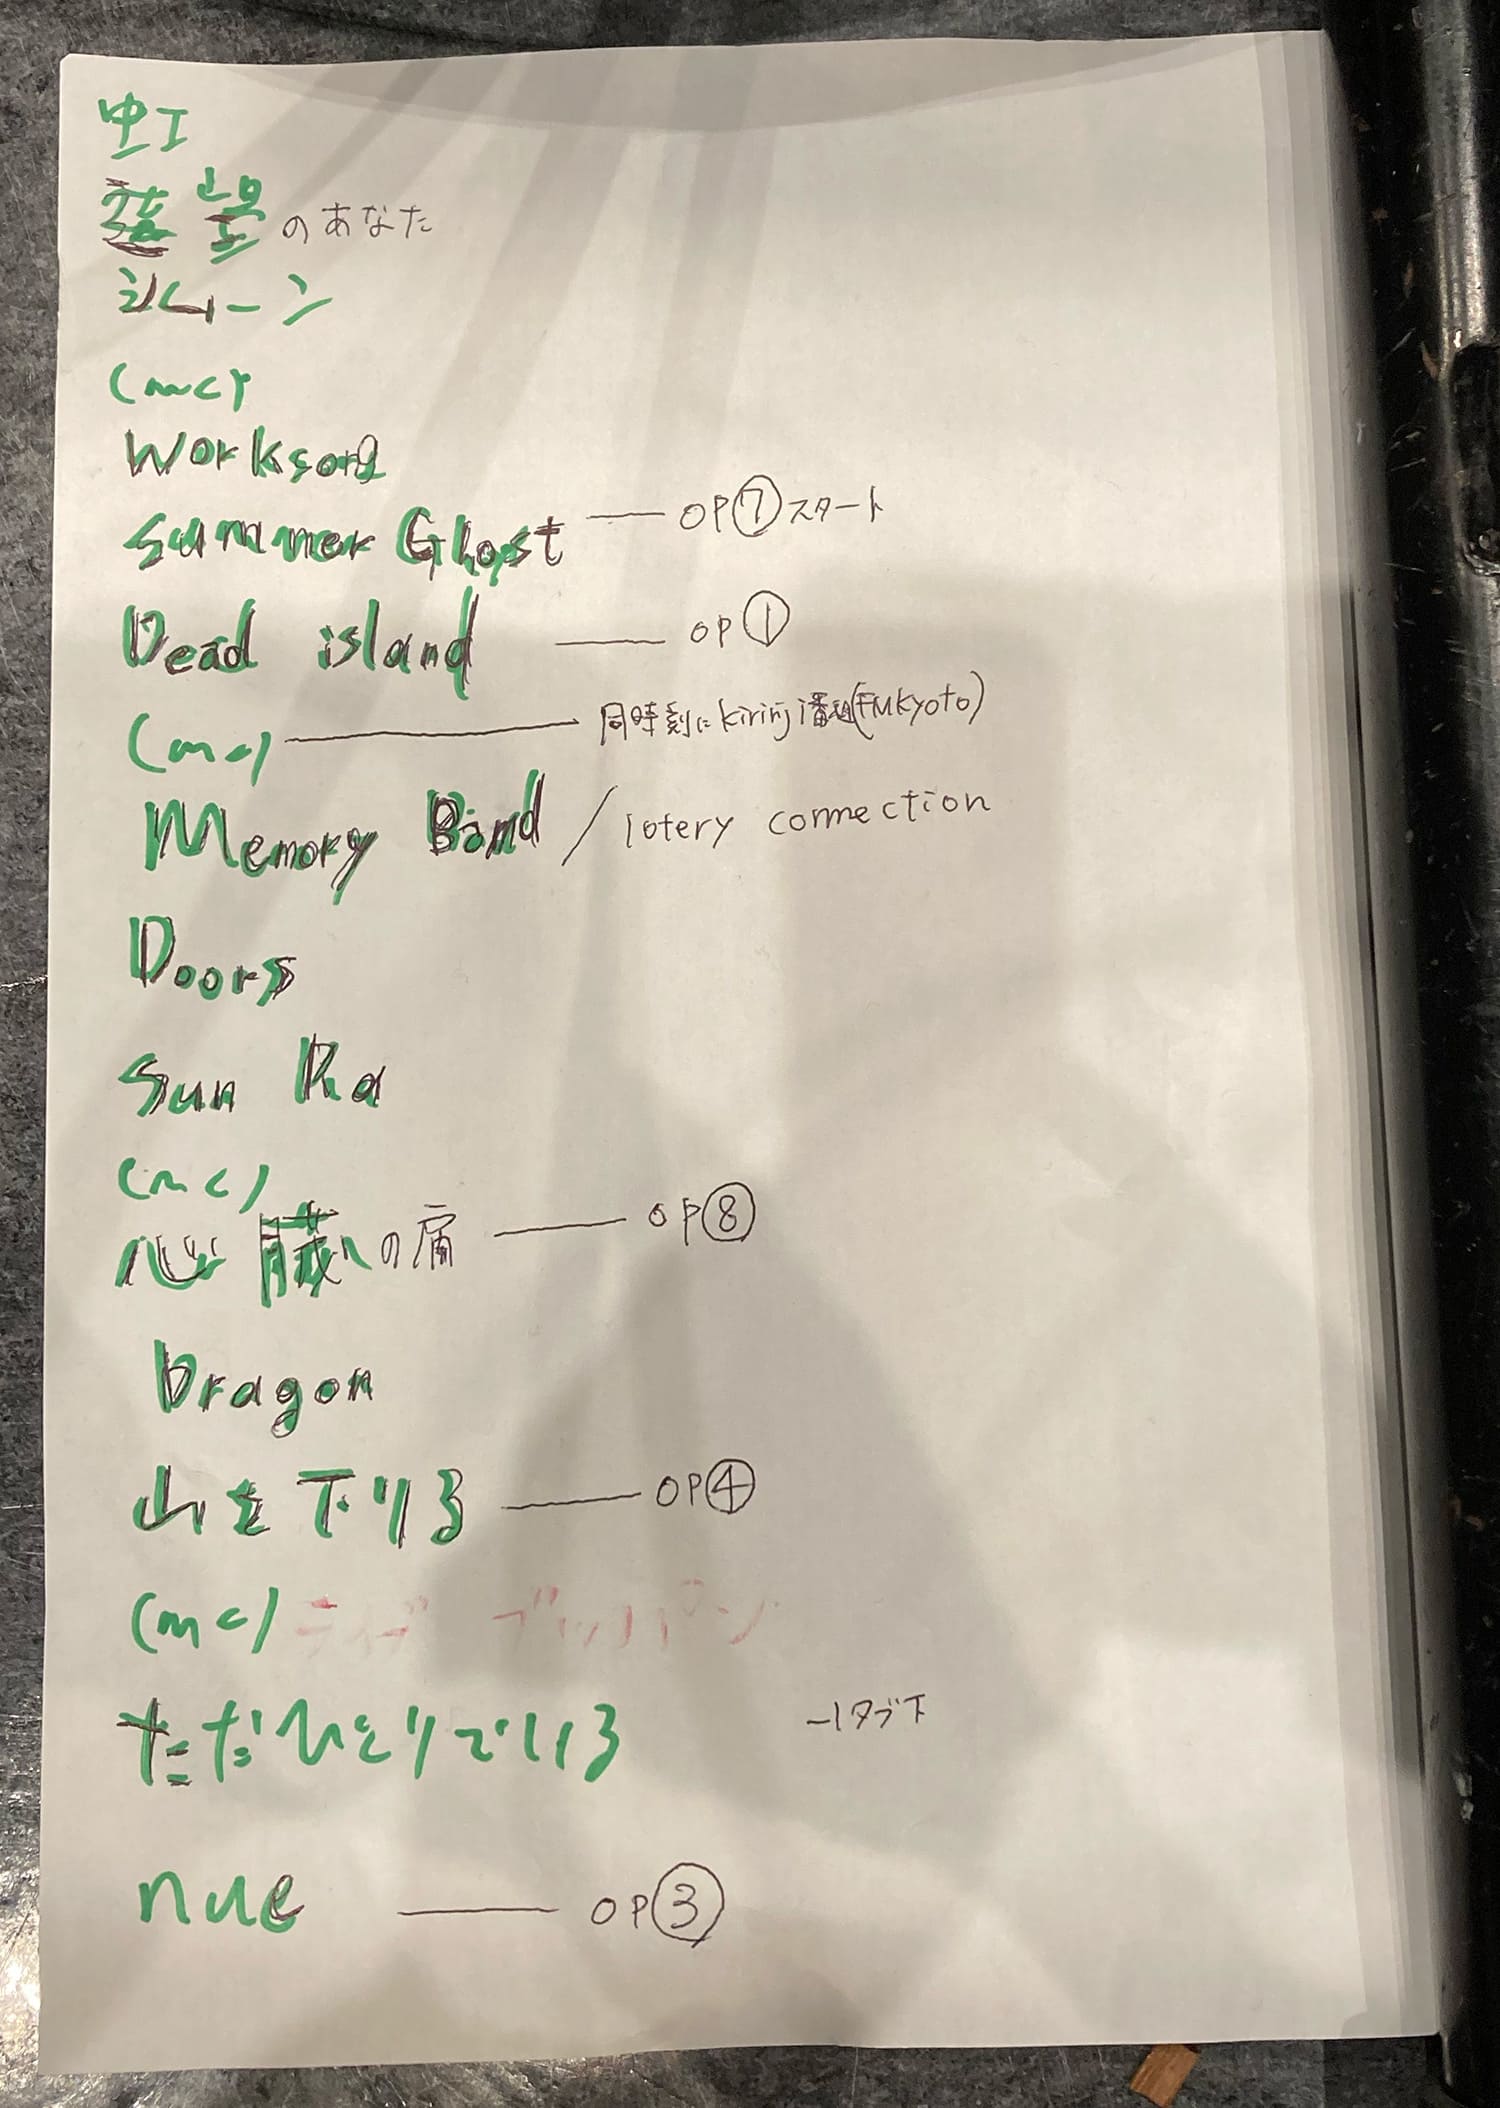 虹
落望のあなた
シムーン
(mc)
Worksong
Summer Ghost — OP⑦スタート
Dead island — OP①
(mc) — 同時刻にkirinji番組(FMKyoto)
Memory Band / lotery connection
Doors
Sun Ra
(mc)
心臓の扉 — OP⑧
Dragon
山を下りる — OP④
(mc)
ただひとりでいる -1タブ下
nue — OP③